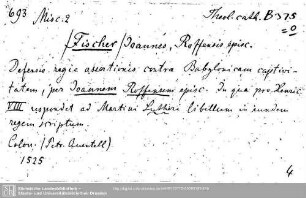 693 Misc. 2
Theol. cath. B 375
=0
[Fischer] Joannes, Roffensis episc.
Defensio regie assertionis contra Babylonicam captivi-
tatem, per Joannem Roffensem episc. In qua pro Henric.
VIII respondet ad Martini Lutheri libellum in eundem
regem scriptum.
Colon. (Petr. Quentell)
1525
4